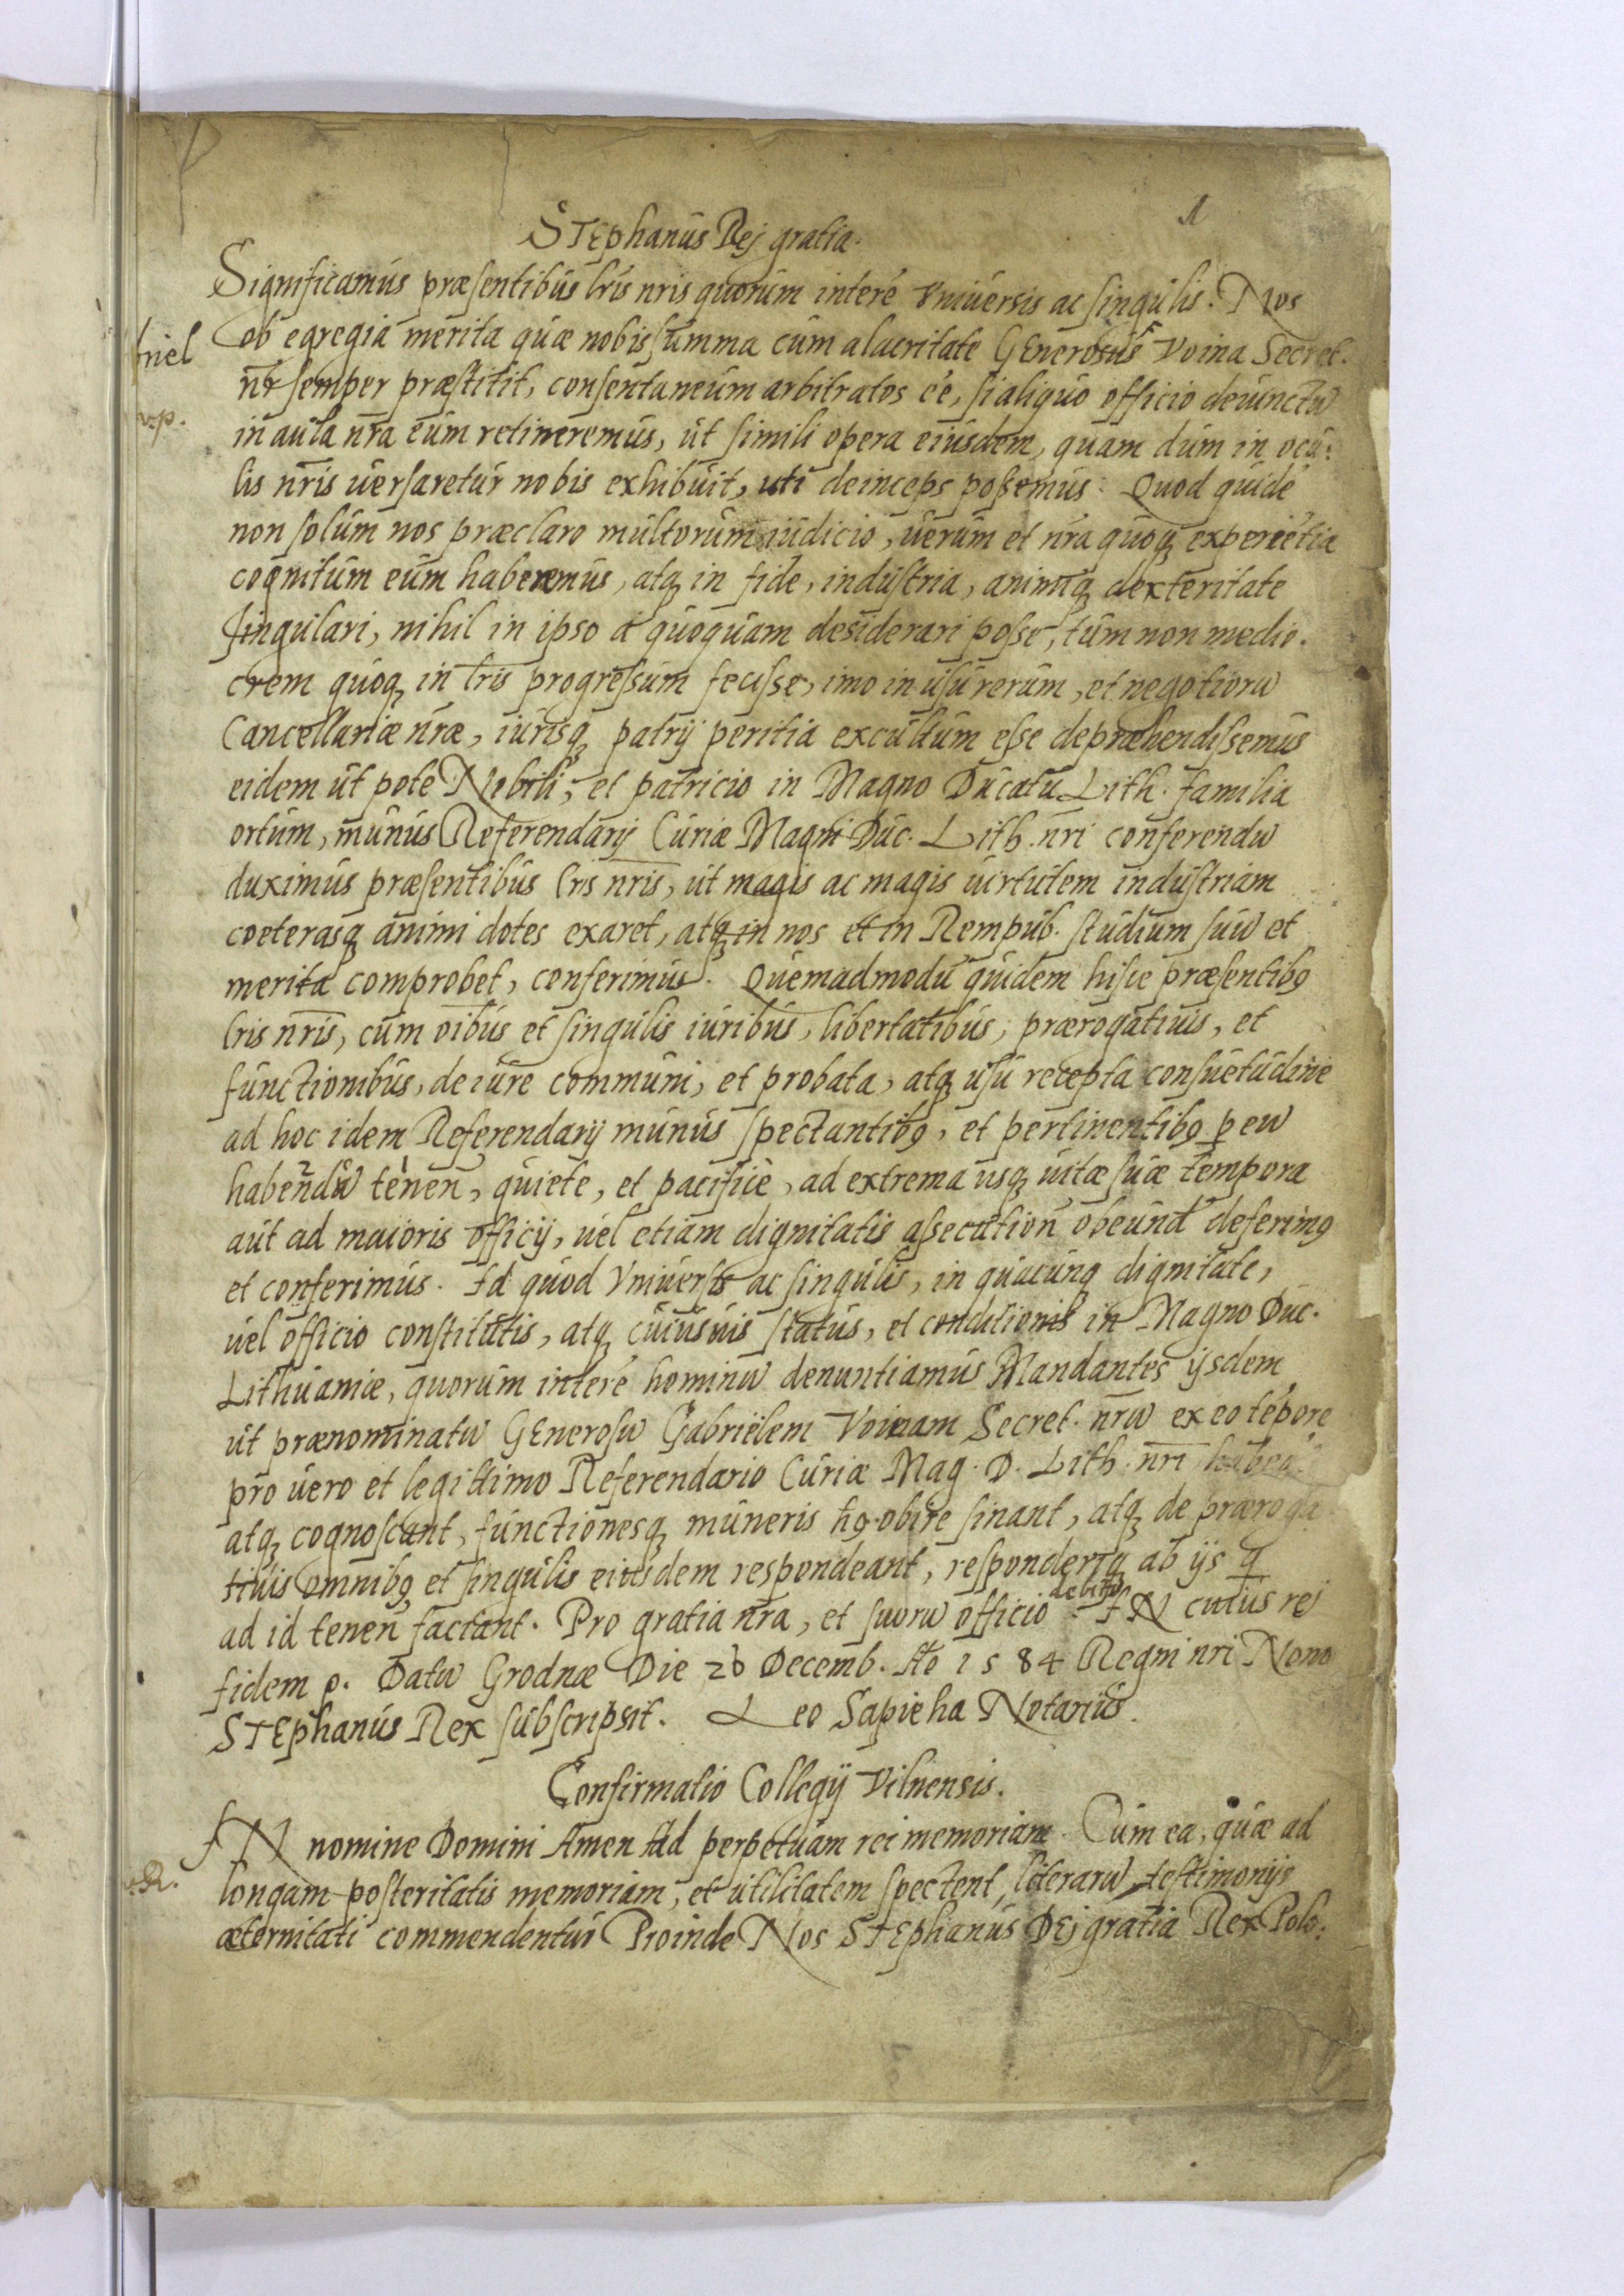 1
STEphanus Dej gratia.
Significamus præsentibus lris nris quorum interẽ Vniuersis ac singulis. Nos
ob egregia merita quæ nobis summa cum alacritate GEnerosus Voina Secret.
nr semper præstitit, consentaneum arbitratos ẽe, si aliquo officio deuinctũ
in aula nra eum retineremus, ut simili opera eiusdem, quam dum in ocu:
lis nris uersaretur nobis exhibuit, uti deinceps possemus. Quod quidẽ
non solum nos præclaro multorum iudicio, uerum et nra quoq experiẽtia
cognitum eum haberemus, atq in fide, industria, animiq dexteritate
singulari, nihil in ipso á quoquam desiderari posse, tum non medio.
crem quoq in lris progressum fecisse, imo in usu rerum, et negotiorũ
Cancellariæ nræ, iurisq patrij peritia excultum esse depræhendissemus
eidem ut pote Nobili, et patricio in Magno Ducatu Lith. familia
ortum, munus Referendarij Curiæ Magni Duc. Lith. nri conferendũ
duximus præsentibus lris nris, ut magis ac magis uirtutem industriam
coeterasq animi dotes exaret, atq in nos et in Rempub. studium suũ et
merita comprobet, conferimus. Quemadmodũ quidem hisce præsentib9
lris nris, cum oibus et singulis iuribus, libertatibus, prærogatiuis, et
functionibus, de iure communi, et probata, atq usu recepta consuetudine
ad hoc idem Referendarij munus spectantib9, et pertinentib9 p eũ
habendũ tenen, quiete, et pacifice, ad extrema usq uitæ suæ tempora
aut ad maioris officij, uel etiam dignitatis assecution obeund deferim9
et conferimus. Id quod Vniuersis ac singulis, in quacunq dignitate,
uel officio constitutis, atq cuiusuis status, et conditionis in Magno Duc.
Lithuaniæ, quorum interẽ hominũ denuntiamus Mandantes ijsdem
ut prænominatũ GEnerosũ Gabriëlem Voinam Secret. nrũ ex eo tẽpore
pro uero et legittimo Referendario Curiæ Mag. D. Lith. nri habea
atq cognoscant, functionesq muneris h9 obire sinant, atq de præroga
tiuis omnib9 et singulis eiusdem respondeant, responderiq ab ijs q
ad id tenen faciant. Pro gratia nra, et suorũ officio debito. IN cuius rej
fidem p. Datũ Grodnæ Die 26 Decemb. Ao 1584 Regni nri Nono
STEphanus Rex subscripsit. Leo Sapieha Notarius.
Confirmatio Collegij Vilnensis.
IN nomine Domini Amen Ad perpetuam rei memoriam. Cum ea, quæ ad
longam posteritatis memoriam, et utilitatem spectent, literarũ testimonijs
æternitati commendentur Proinde Nos STEphanus DEj gratia Rex Polo: